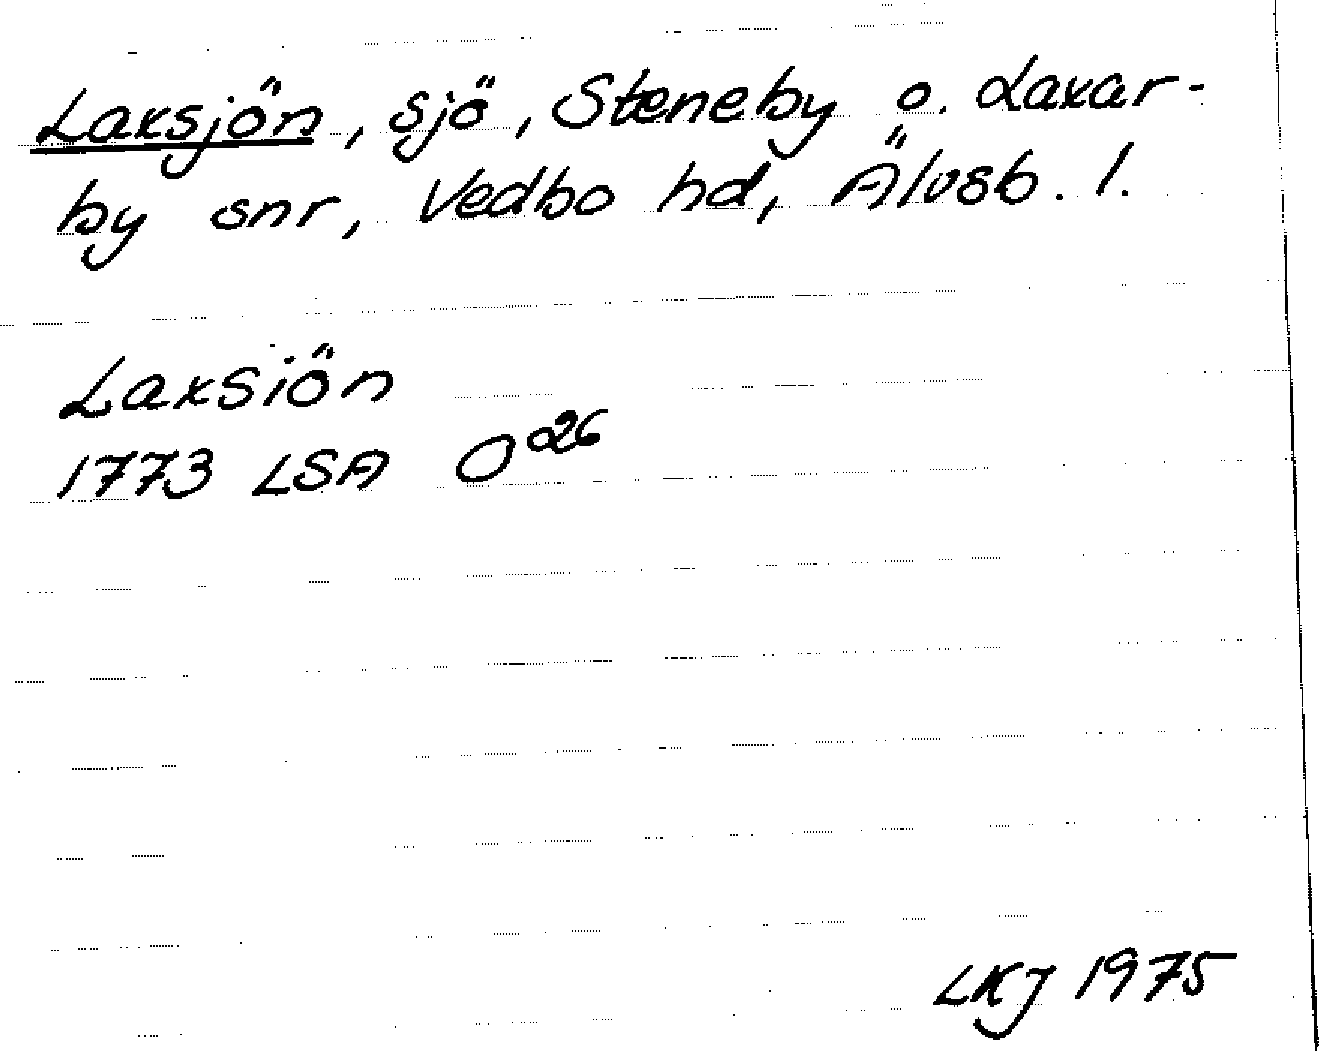 Laxsjön, sjö, Steneby o. Laxar-
by snr, Vedbo hd, Älvsb. l.
Laxsiön
1773 LSA O²⁶
LKJ 1975